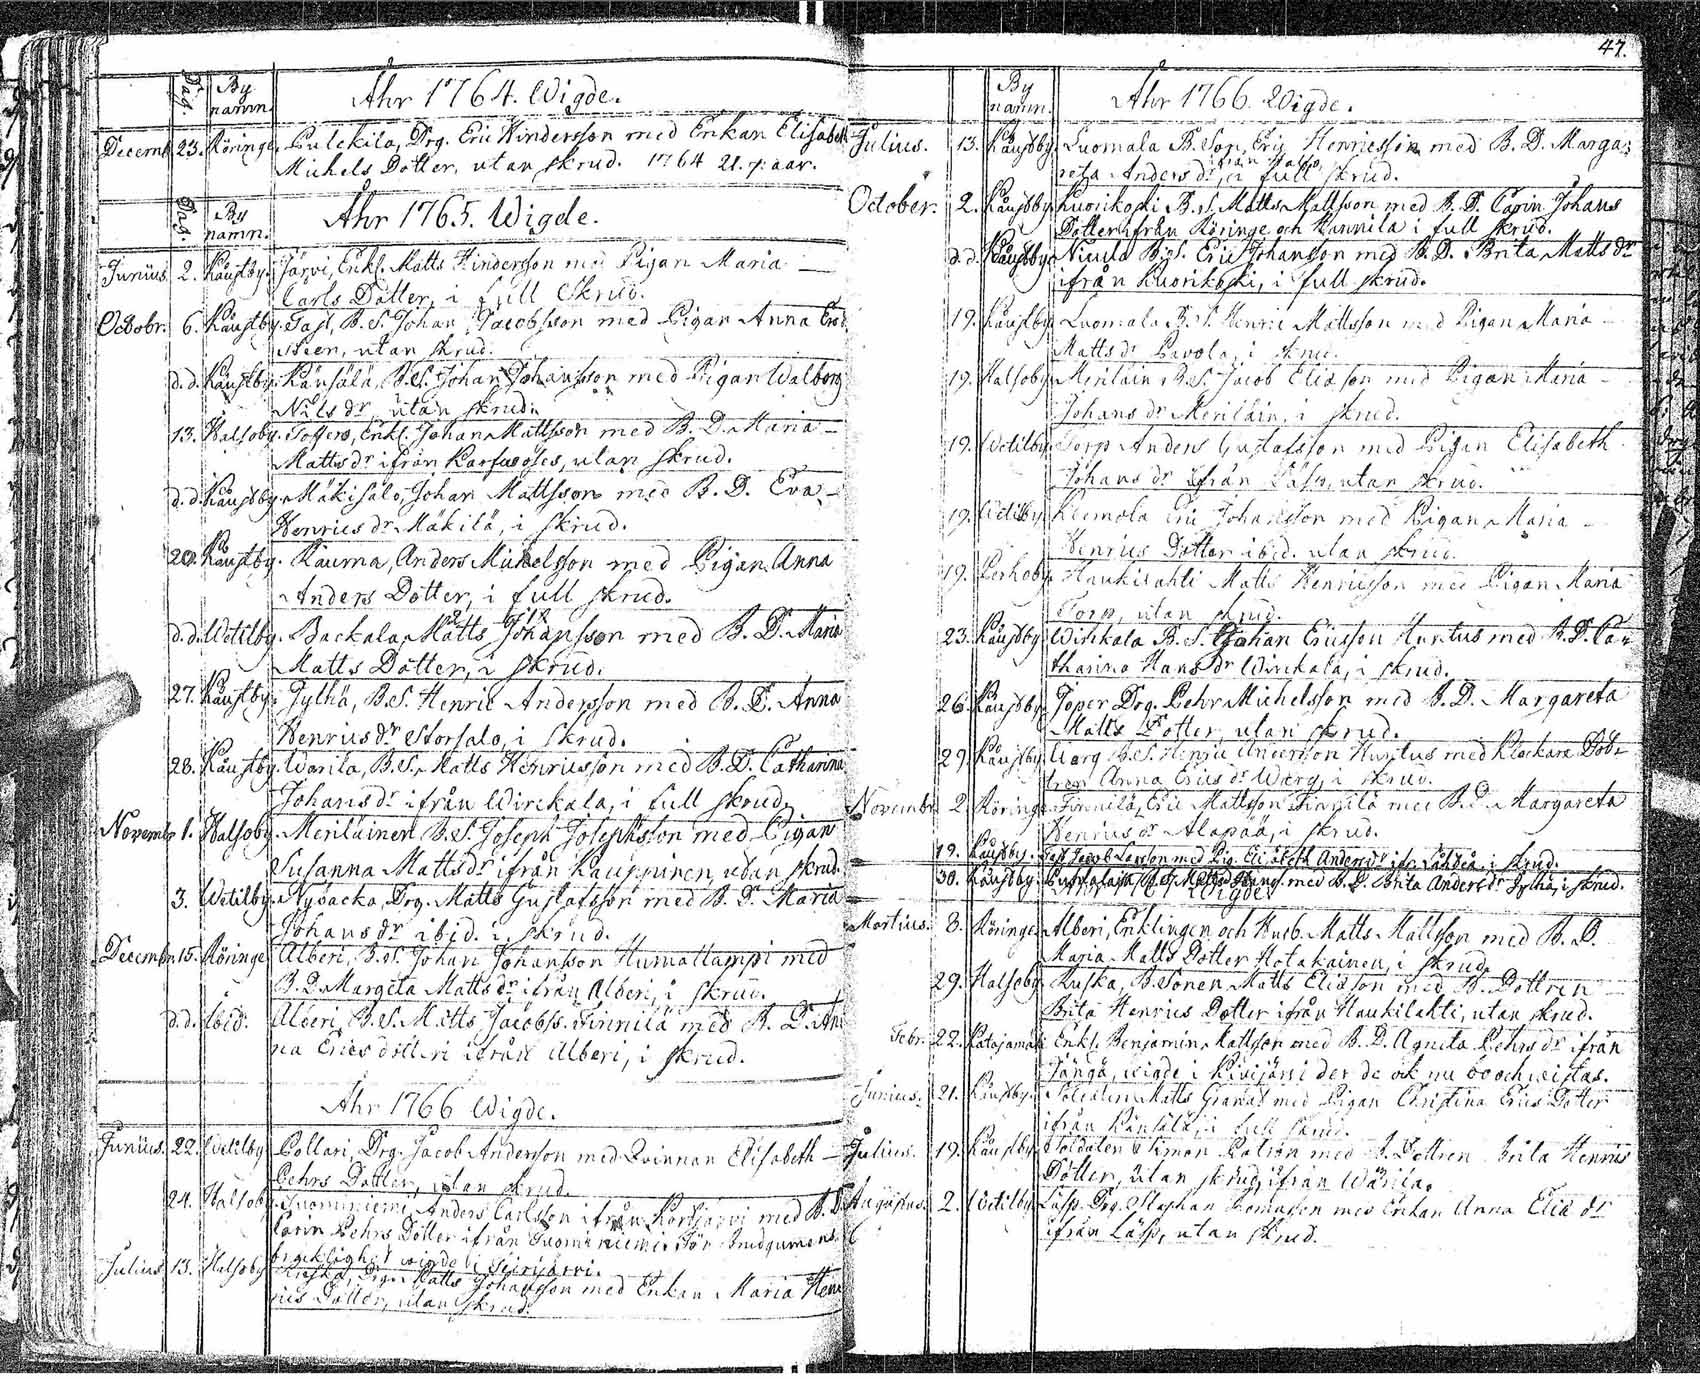 Dag. By namn. Åhr 1764. Wigde.
Decemb. 23. Röringe. Pulckila, Drg. Eric Hindersson med Enkan Elisabeth
Michels Dotter, utan skrud. 1764 21. par.
Dag. By namn. Åhr 1765. Wigde.
Junius. 2. Kaustby. Järvi, Enkl. Matts Hindersson med Pigan Maria
Carls Dotter, i full Skrud.
Octobr. 6. Kaustby. Tast, B.S. Johan Jacobsson med Pigan Anna
utan skrud.
d.d. Kaustby. Känsälä, B.S. Johan Johansson med Pigan Walborg
Nils dr, utan skrud.
13. Halsoby. Enkl. Johan Mattsson med B.D. Maria
Matts dr ifrån utan skrud.
d.d. Kaustby. Mäkisalo, Johan Mattsson med B.D. Eva
Henrics dr Mäkilä, i skrud.
20. Kaustby. Kauma, Anders Michelsson med Pigan Anna
Anders Dotter, i full skrud.
d.d. Wetilby. Backala Matts Johansson med B.D. Maria
Matts Dotter, i skrud.
27. Kaustby. Jylhä, B.S. Henric Andersson med B.D. Anna
Henrics dr Storsalo, i skrud.
28. Kaustby. Warila, B.S. Matts Henricsson med B.D. Catharina
Johans dr ifrån Wirckala, i full skrud.
Novembr. 1. Halsoby. Meriläinen B.S. Joseph Josephsson med Pigan
Susanna Matts dr ifrån Kauppinen, utan skrud.
3. Wetilby. Nybacka, Drg. Matts Gustafsson med B.D. Maria
Johans dr ibid. i skrud.
Decembr. 15. Röringe. Alberi, B.S. Johan Johansson Humattampi med
B.D. Margeta Matts dr ifrån Alberi, i skrud.
d.d. Ibid. Alberi, B.S. Matts Jacobss. Finnilä med B.D. An
na Erics dotter ifrån Alberi, i skrud.
Åhr 1766 Wigde.
Junius. 22. Wetilby. Pollari, Drg. Jacob Andersson med Qvinnan Elisabeth
Pehrs Dotter, utan skrud.
24. Halsoby. Suominiemi, Anders Carlsson ifrån med B.D.
Carin Pehrs Dotter ifrån Suominiemi. För brudgumens
bräcklighet wigde i
Julius 13. Halsoby Drg. Matts Johansson med Enkan Maria Hen
rics Dotter, utan skrud.
47.
By namn. Åhr 1766. Wigde.
Julius. 13. Kaustby. Luomala B. Son, Eric Henricsson med B.D. Marga
reta Anders dr, ifrån i full skrud.
October. 2. Kaustby. Kuorikoski B.S. Matts Mattsson med B.D. Carin Johans
Dotter ifrån Röringe och Hannila i full skrud.
d.d. Kaustby. Nicula B.S. Eric Johansson med B.D. Brita Matts dr
ifrån Kuorikoski, i full skrud.
19. Kaustby. Luomala B.S. Henric Mattsson med Pigan Maria
Matts dr Pavola, i skrud.
19. Halsoby. Meriläin B.S. Jacob Eliason med Pigan Maria
Johans dr Meriläin, i skrud.
19. Wetilby. Torp Anders Gustafsson med Pigan Elisabeth
Johans dr ifrån Läsp, utan skrud.
19. Wetilby. Klemola Eric Johansson med Pigan Maria
Henrics Dotter ibid. utan skrud.
19. Perhoby. Haukilahti Matts Henricsson med Pigan Maria
Torp, utan skrud.
23. Kaustby. Wirckala B.S. Johan Ericsson Huntus med B.D. Ca
tharina Hans dr Wirckala, i skrud.
26. Kaustby. Töper Drg. Pehr Michelsson med B.D. Margareta
Matts Dotter, utan skrud.
29. Kaustby. Warg B.S. Henric Andersson Huntus med Klockare Dot
tren Anna Erics dr Warg, i skrud.
Novembr. 2. Röringe. Finnilä, Eric Mattsson Finnilä med B.D. Margareta
Henrics dr Alapää, i skrud.
19. Kaustby. Tast Jacob Larsson med Pig. Elisabeth Anders dr ifr. i skrud.
30. Kaustby. B.S. Matts med B.D. Brita Anders dr Jylhä, i skrud.
Wigde.
Martius. 8. Röringe. Alberi, Enklingen och Husb. Matts Mattsson med B.D.
Maria Matts Dotter Hotakainen, i skrud.
29. Halsoby. Ruska, B. Sonen Matts Eliason med B. Dottren
Brita Henrics Dotter ifrån Haukilahti, utan skrud.
Febr. 22. Patajamäk. Enkl. Benjamin Mattsson med B.D. Agneta Pehrs dr ifrån
Tänga, wigde i Kivijärvi der de ock nu bo och wistas.
Junius. 21. Kaustby. Soldaten Matts Granat med Pigan Christina Erics Dotter
ifrån Känsälä, i full skrud.
Julius. 19. Kaustby. Soldaten Simon Patron med B. Dottren Brita Henrics
Dotter, utan skrud, ifrån Warila.
Augustus. 2. Wetilby. Läsp. Drg. Staphan Thomasson med Enkan Anna Elia dr
ifrån Läsp, utan skrud.